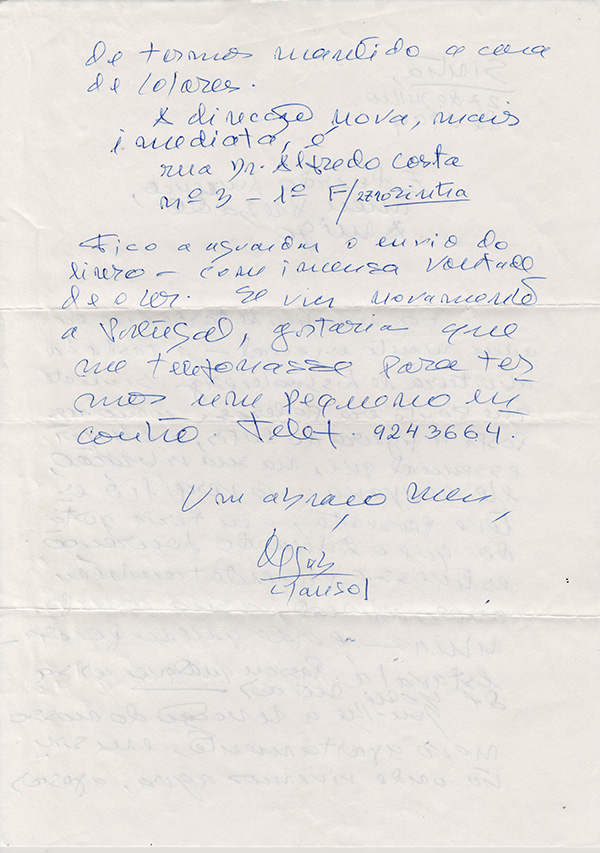 de termos mantido a casa
de Colares.
A direcção nova, mais
imediata, é
rua Dr. Alfredo Costa
nº 3 - 1º F/2710 Sintra
Fico a aguardar o envio do
livro - com imensa vontade
de o ler. Se vier novamente
a Portugal, gostaria que
me telefonasse para ter
mos um pequeno en
contro. Telef. 9243664.
Um abraço meu,